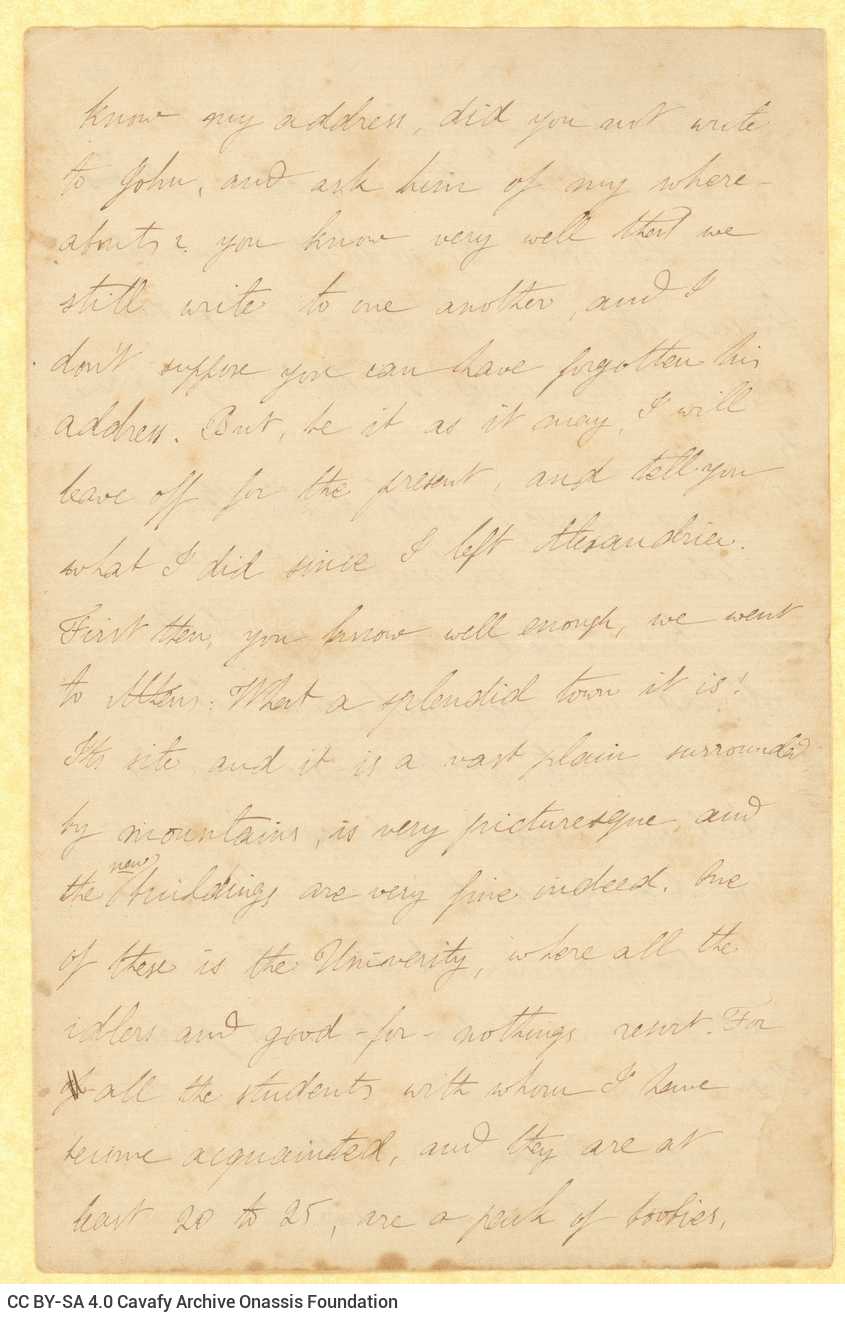 know my address, did you not write
to John, and ask him of my where-
abouts? you know very well that we
still write to one another, and I
don't suppose you can have forgotten his
address. But, be it as it may, I will
leave off for the present, and tell you
what I did since I left Alexandria.
First then, you know well enough, we went
to Athens. What a splendid town it is!
Its site and it is a vast plain surrounded
by mountains, is very picturesque, and
the new buildings are very fine indeed. One
of these is the University, where all the
idlers and good-for-nothings resort. For
all the students with whom I have
become acquainted, and they are at
least 20 to 25, are a pack of boobies,
CC BY-SA 4.0 Cavafy Archive Onassis Foundation